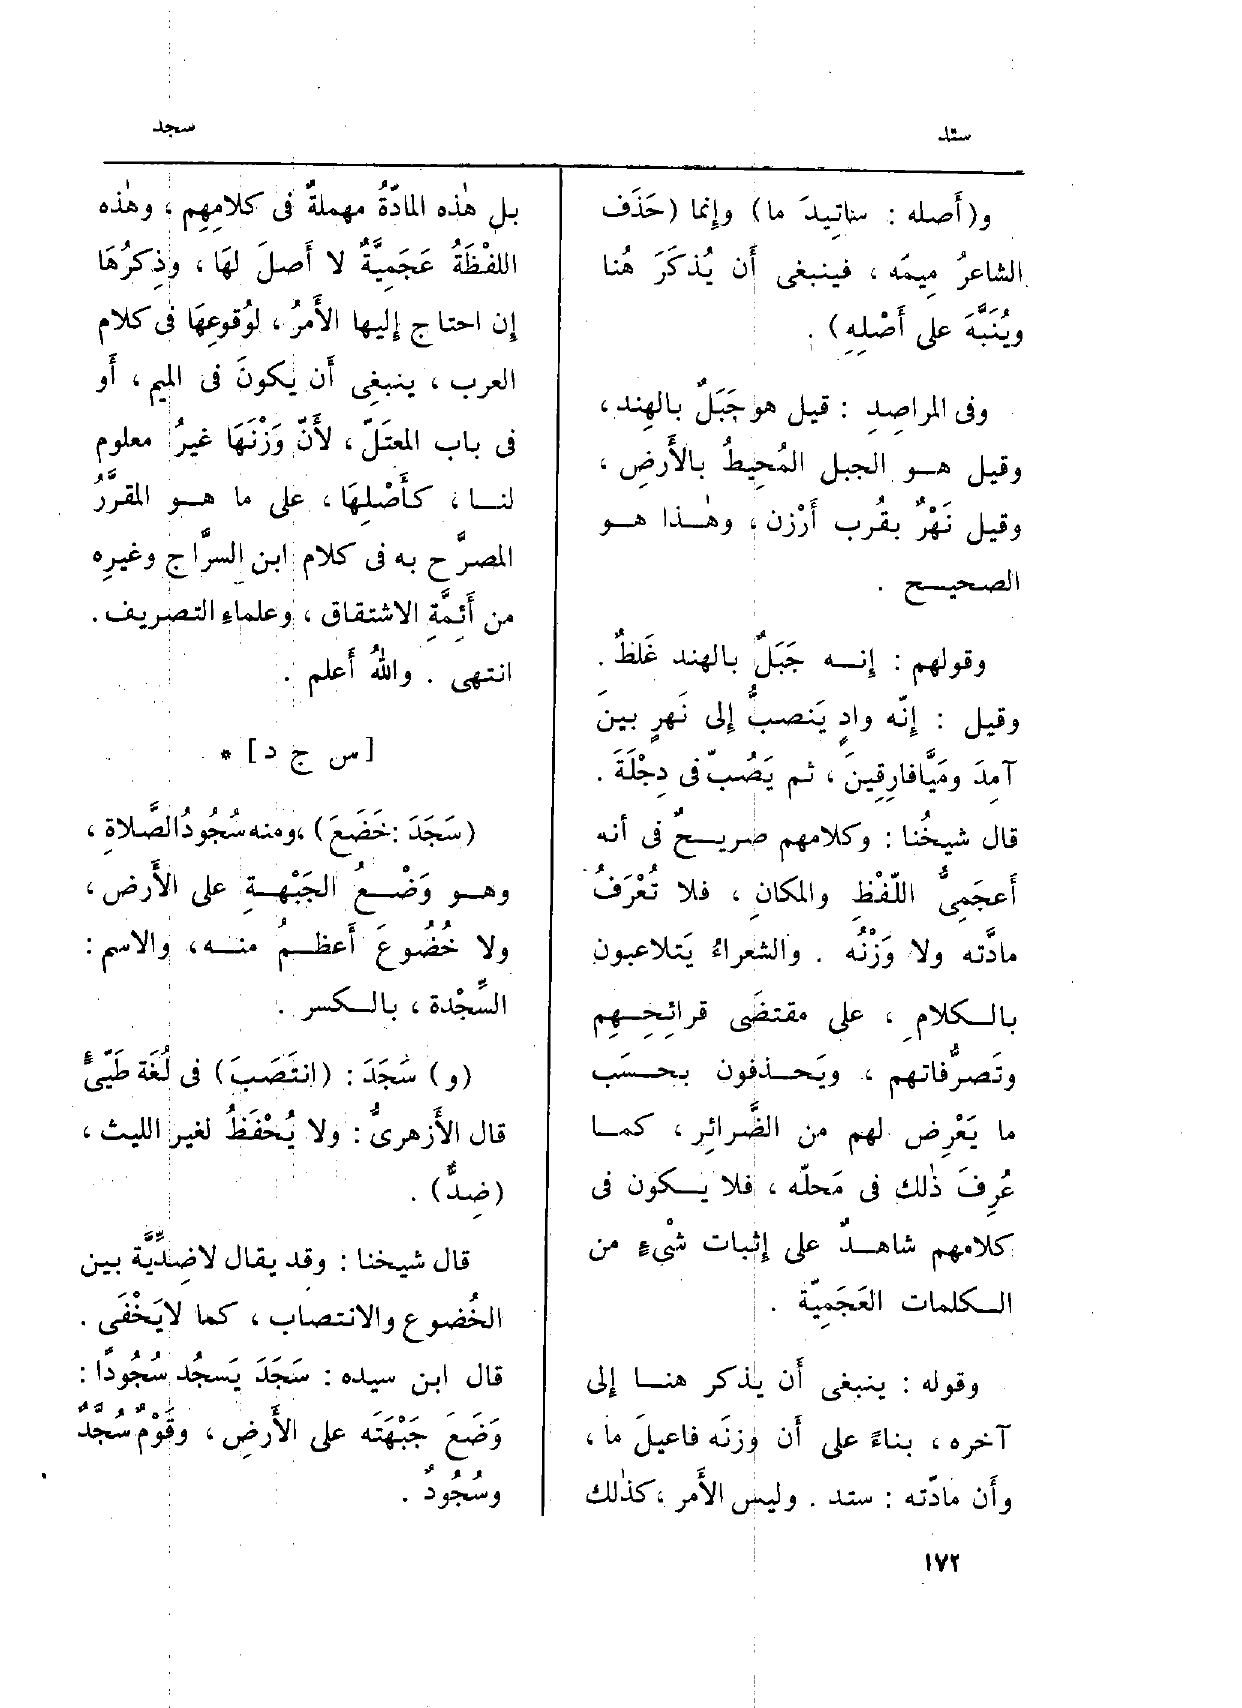 ستد
سجد
و(أصله : ساتِيدَ ما) وإنما (حَذَف
الشاعرُ مِيمَه ، فينبغى أَن يُذكَرَ هُنا
ويُنَبَّهَ على أَصْلِهِ) .
وفى المراصِدِ : قيل هو جَبَلٌ بالهِند ،
وقيل هـو الجبل المُحِيطُ بالأَرضِ ،
وقيل نَهْرٌ بقُرب أَرْزن ، وهٰـذا هـو
الصحيـح .
وقولهم : إِنـه جَبَلٌ بالهند غَلطٌ .
وقيل : إِنّه وادٍ يَنصبُّ إِلى نَهرٍ بينَ
آمِدَ ومَيَّافارِقِينَ ، ثم يَصُبّ فى دِجْلَةَ .
قال شيخُنا : وكلامهم صريـحٌ فى أنه
أَعجَمِىُّ اللّفْظِ والمكانِ ، فلا تُعْرَفُ
مادَّته ولا وَزْنُه . والشعراءُ يَتلاعبون
بالـكلامِ ، على مقتضَى قرائِحِـهِم
وتَصرُّفاتهم ، ويَحـذفون بحـسَب
ما يَعْرِض لهم من الضَّرائِر ، كمـا
عُرِفَ ذٰلك فى مَحلّه ، فلا يـكون فى
كلامهم شاهـدٌ على إِثبات شْىءٍ من
الـكلمات العَجَمِيّة .
وقوله : ينبغى أَن يذكر هنـا إِلى
آخره ، بناءً على أَن وزنَه فاعيلَ ما ،
وأَن مادّته : ستد . وليس الأَمر ، كذٰلك
بل هٰذه المادّةُ مهملةٌ فى كلامِهِم ، وهٰذه
اللفْظَةُ عَجَمِيَّةٌ لا أَصلَ لهَا ، وذِكرُهَا
إِن احتاج إِليها الأَمرُ ، لوُقوعِهَا فى كلام
العرب ، ينبغِى أَن يكونَ فى الميم ، أَو
فى باب المعتَلّ ، لأَنّ وَزْنَهَا غيرُ معلوم
لنـا ، كأَصْلِهَا ، على ما هـو المقرَّرُ
المصرَّح به فى كلام ابن السرَّاج وغيرِه
من أَئِمَّةِ الاشتقاق ، وعلماءِ التصريف .
انتهى . واللهُ أَعلم .
[س ج د] *
(سَجَدَ : خَضَعَ) ، ومنه سُجُودُ الصَّلاةِ ،
وهـو وَضْـعُ الجَبْهـةِ على الأَرض ،
ولا خُضُوعَ أَعظـمُ منـه ، والاسم :
السِّجْدة ، بالـكسر .
(و) سَجَدَ : (انتَصَبَ) فى لُغَة طَيِّئٍ
قال الأَزهرىُّ : ولا يُحْفَظُ لغير الليث ،
(ضِدٌّ) .
قال شيخنا : وقد يقال لا ضِدِّيَّة بين
الخُضوع والانتصاب ، كما لايَخْفَى .
قال ابن سيده : سَجَدَ يَسجُد سُجُودًا :
وَضَعَ جَبْهَتَه على الأَرضِ ، وقَوْمٌ سُجَّدٌ
وسُجُودٌ .
١٧٢